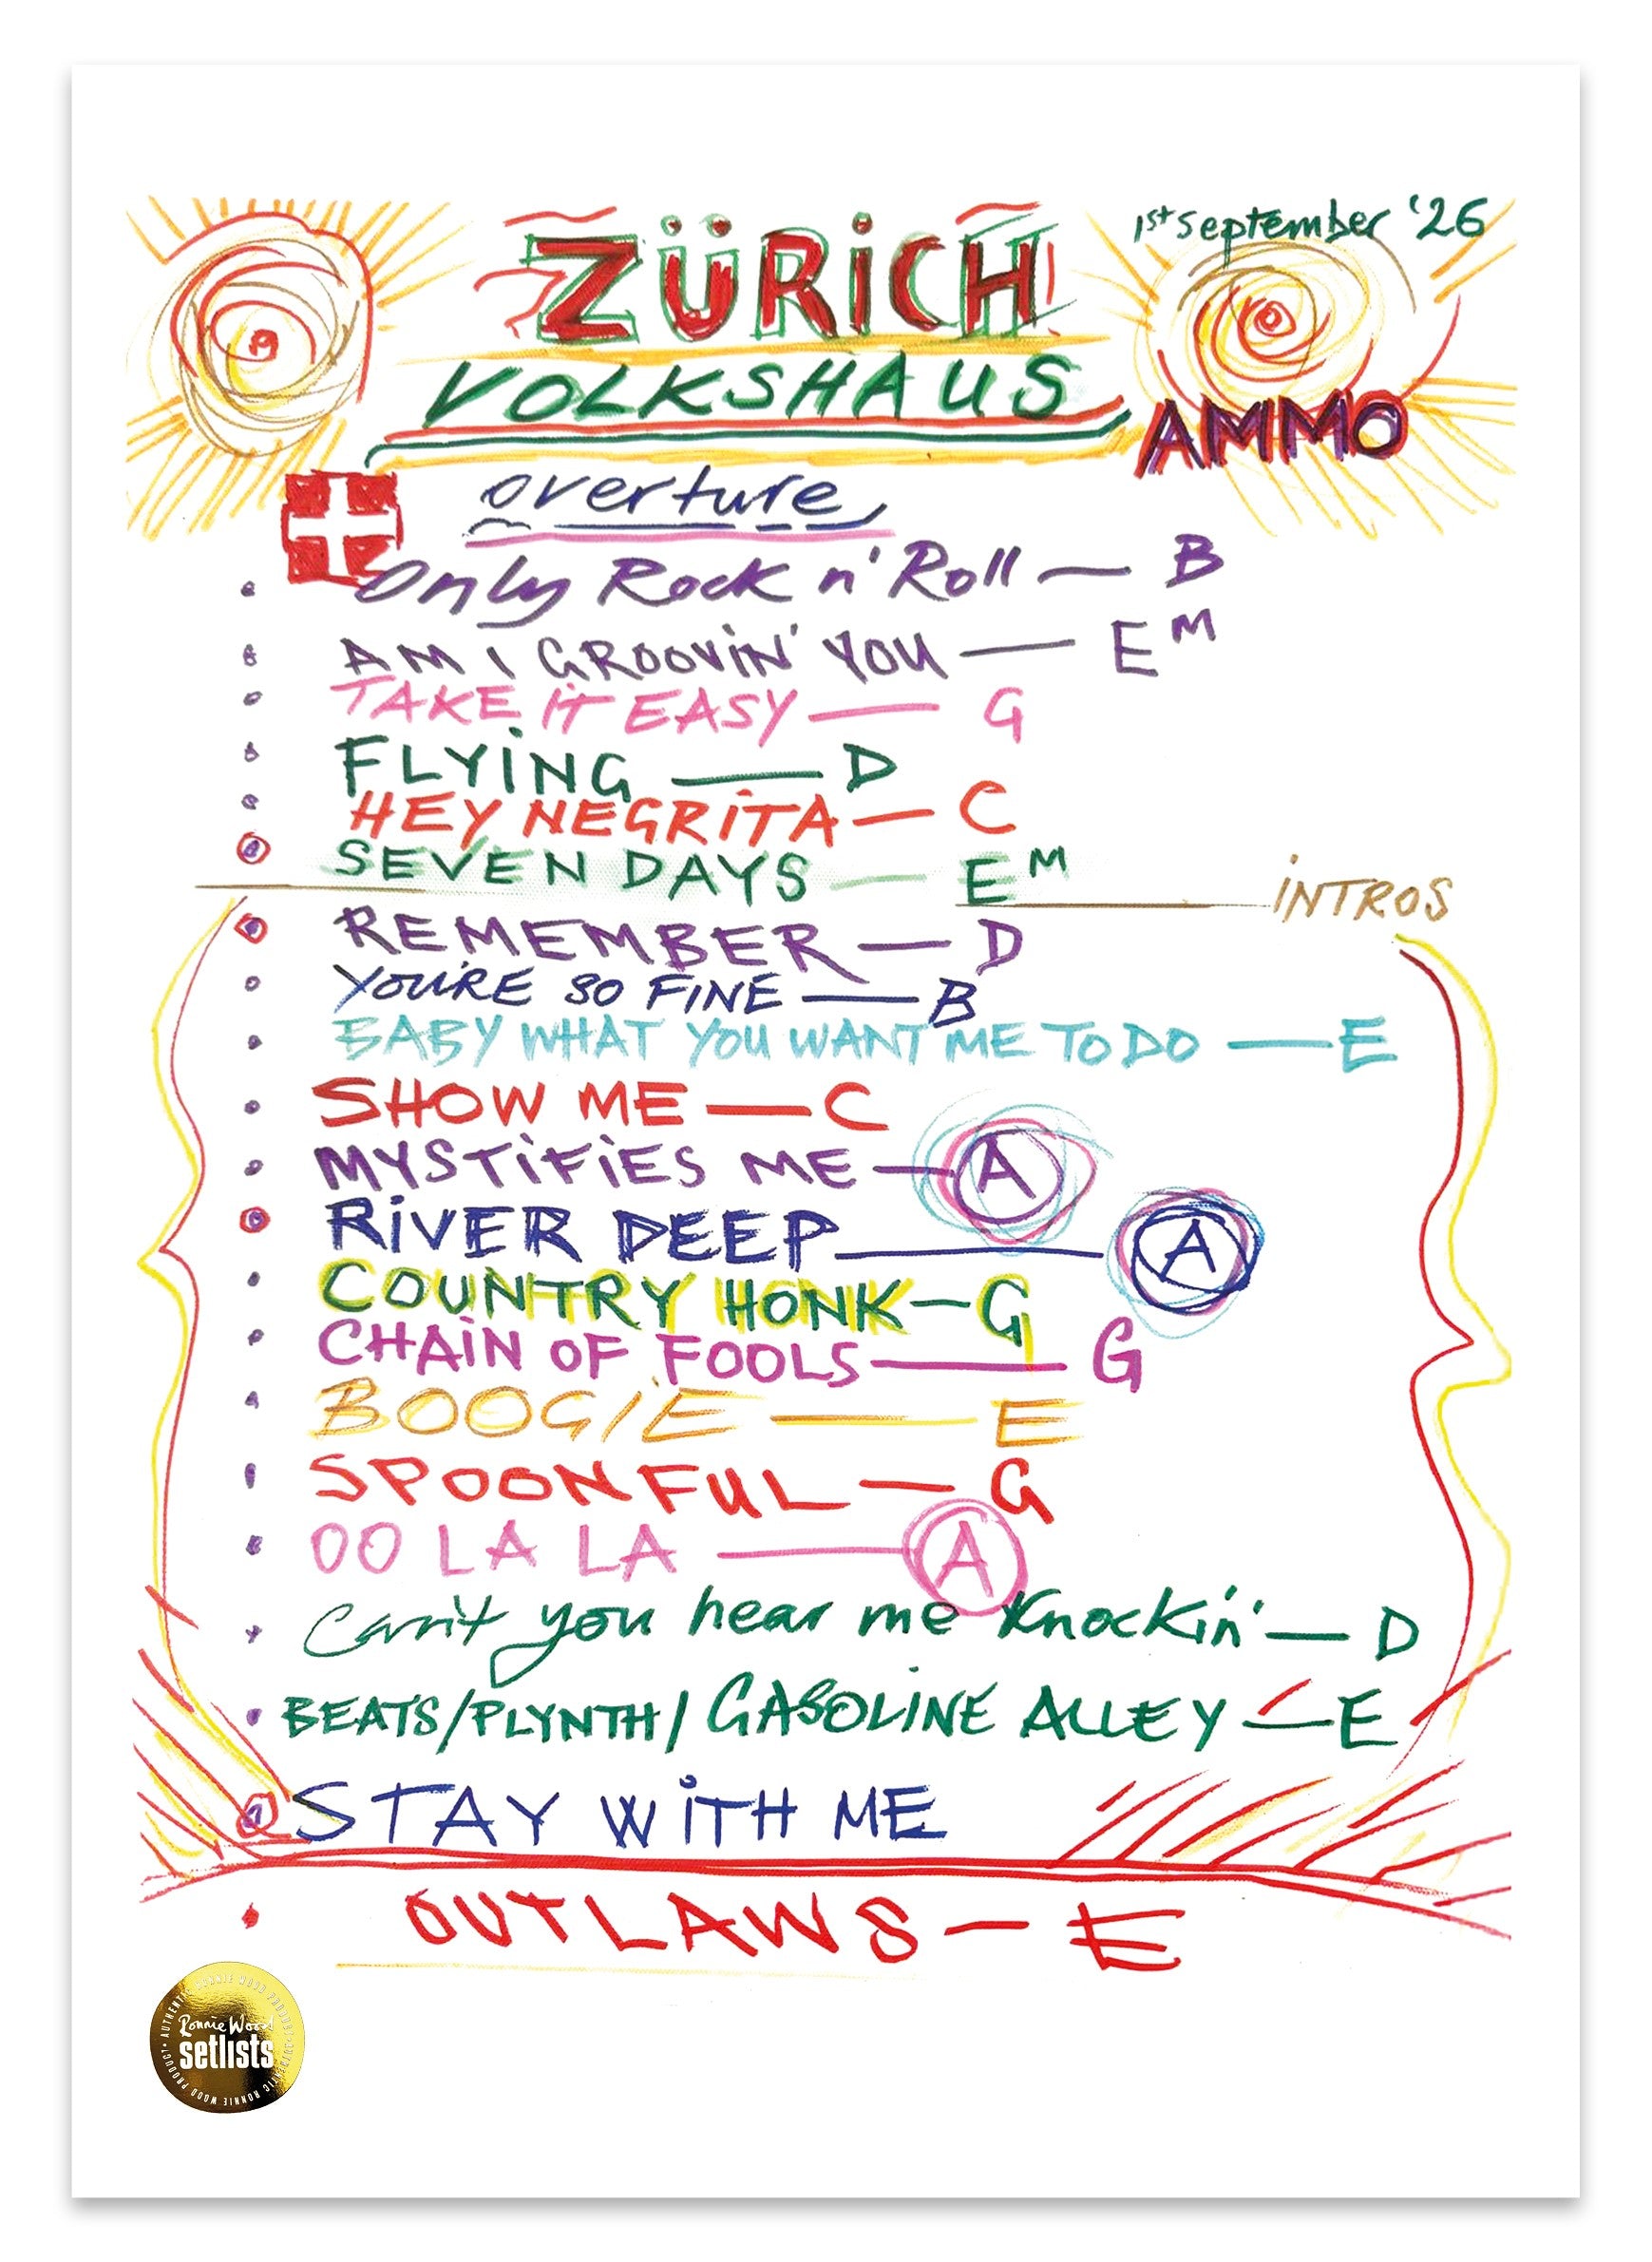 1st September '26
ZÜRiCH
VOLKSHAUS
AMMO
overture
Only Rock n' Roll — B
AM I GROOViN' YOU — EM
TAKE iT EASY — G
FLYiNG — D
HEY NEGRiTA — C
SEVEN DAYS — EM
iNTROS
REMEMBER — D
YOU'RE SO FiNE — B
BABY WHAT YOU WANT ME TO DO — E
SHOW ME — C
MYSTiFiES ME — A
RiVER DEEP — A
COUNTRY HONK — G
CHAiN OF FOOLS — G
BOOGIE — E
SPOONFUL — G
OO LA LA — A
Can't you hear me Knockin' — D
BEATS/PLYNTH/GASOLiNE ALLEY — E
STAY WiTH ME
OUTLAWS — E
AUTHENTIC RONNIE WOOD PRODUCT • AUTHENTIC RONNIE WOOD PRODUCT •
Ronnie Wood
setlists